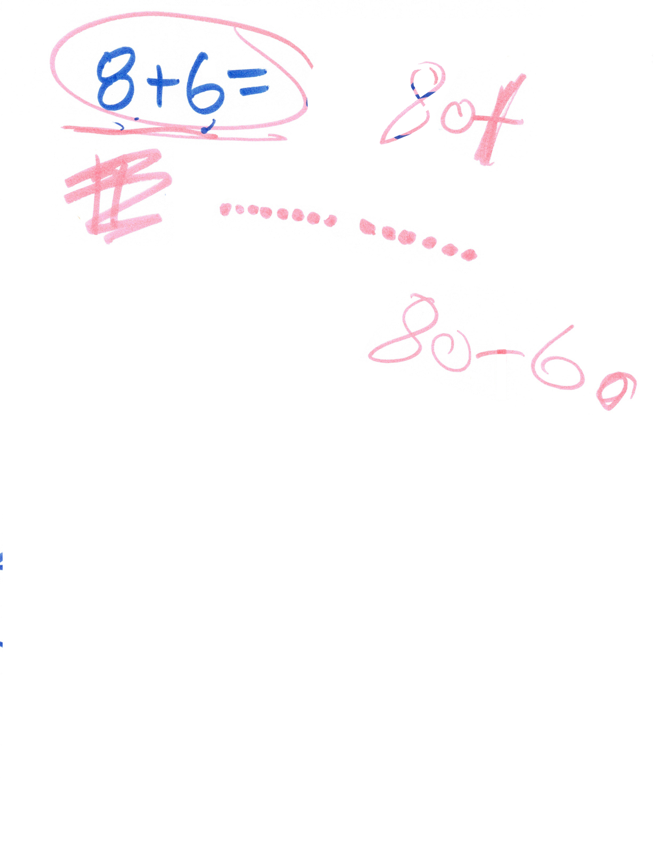 8+6=
80+
80-60